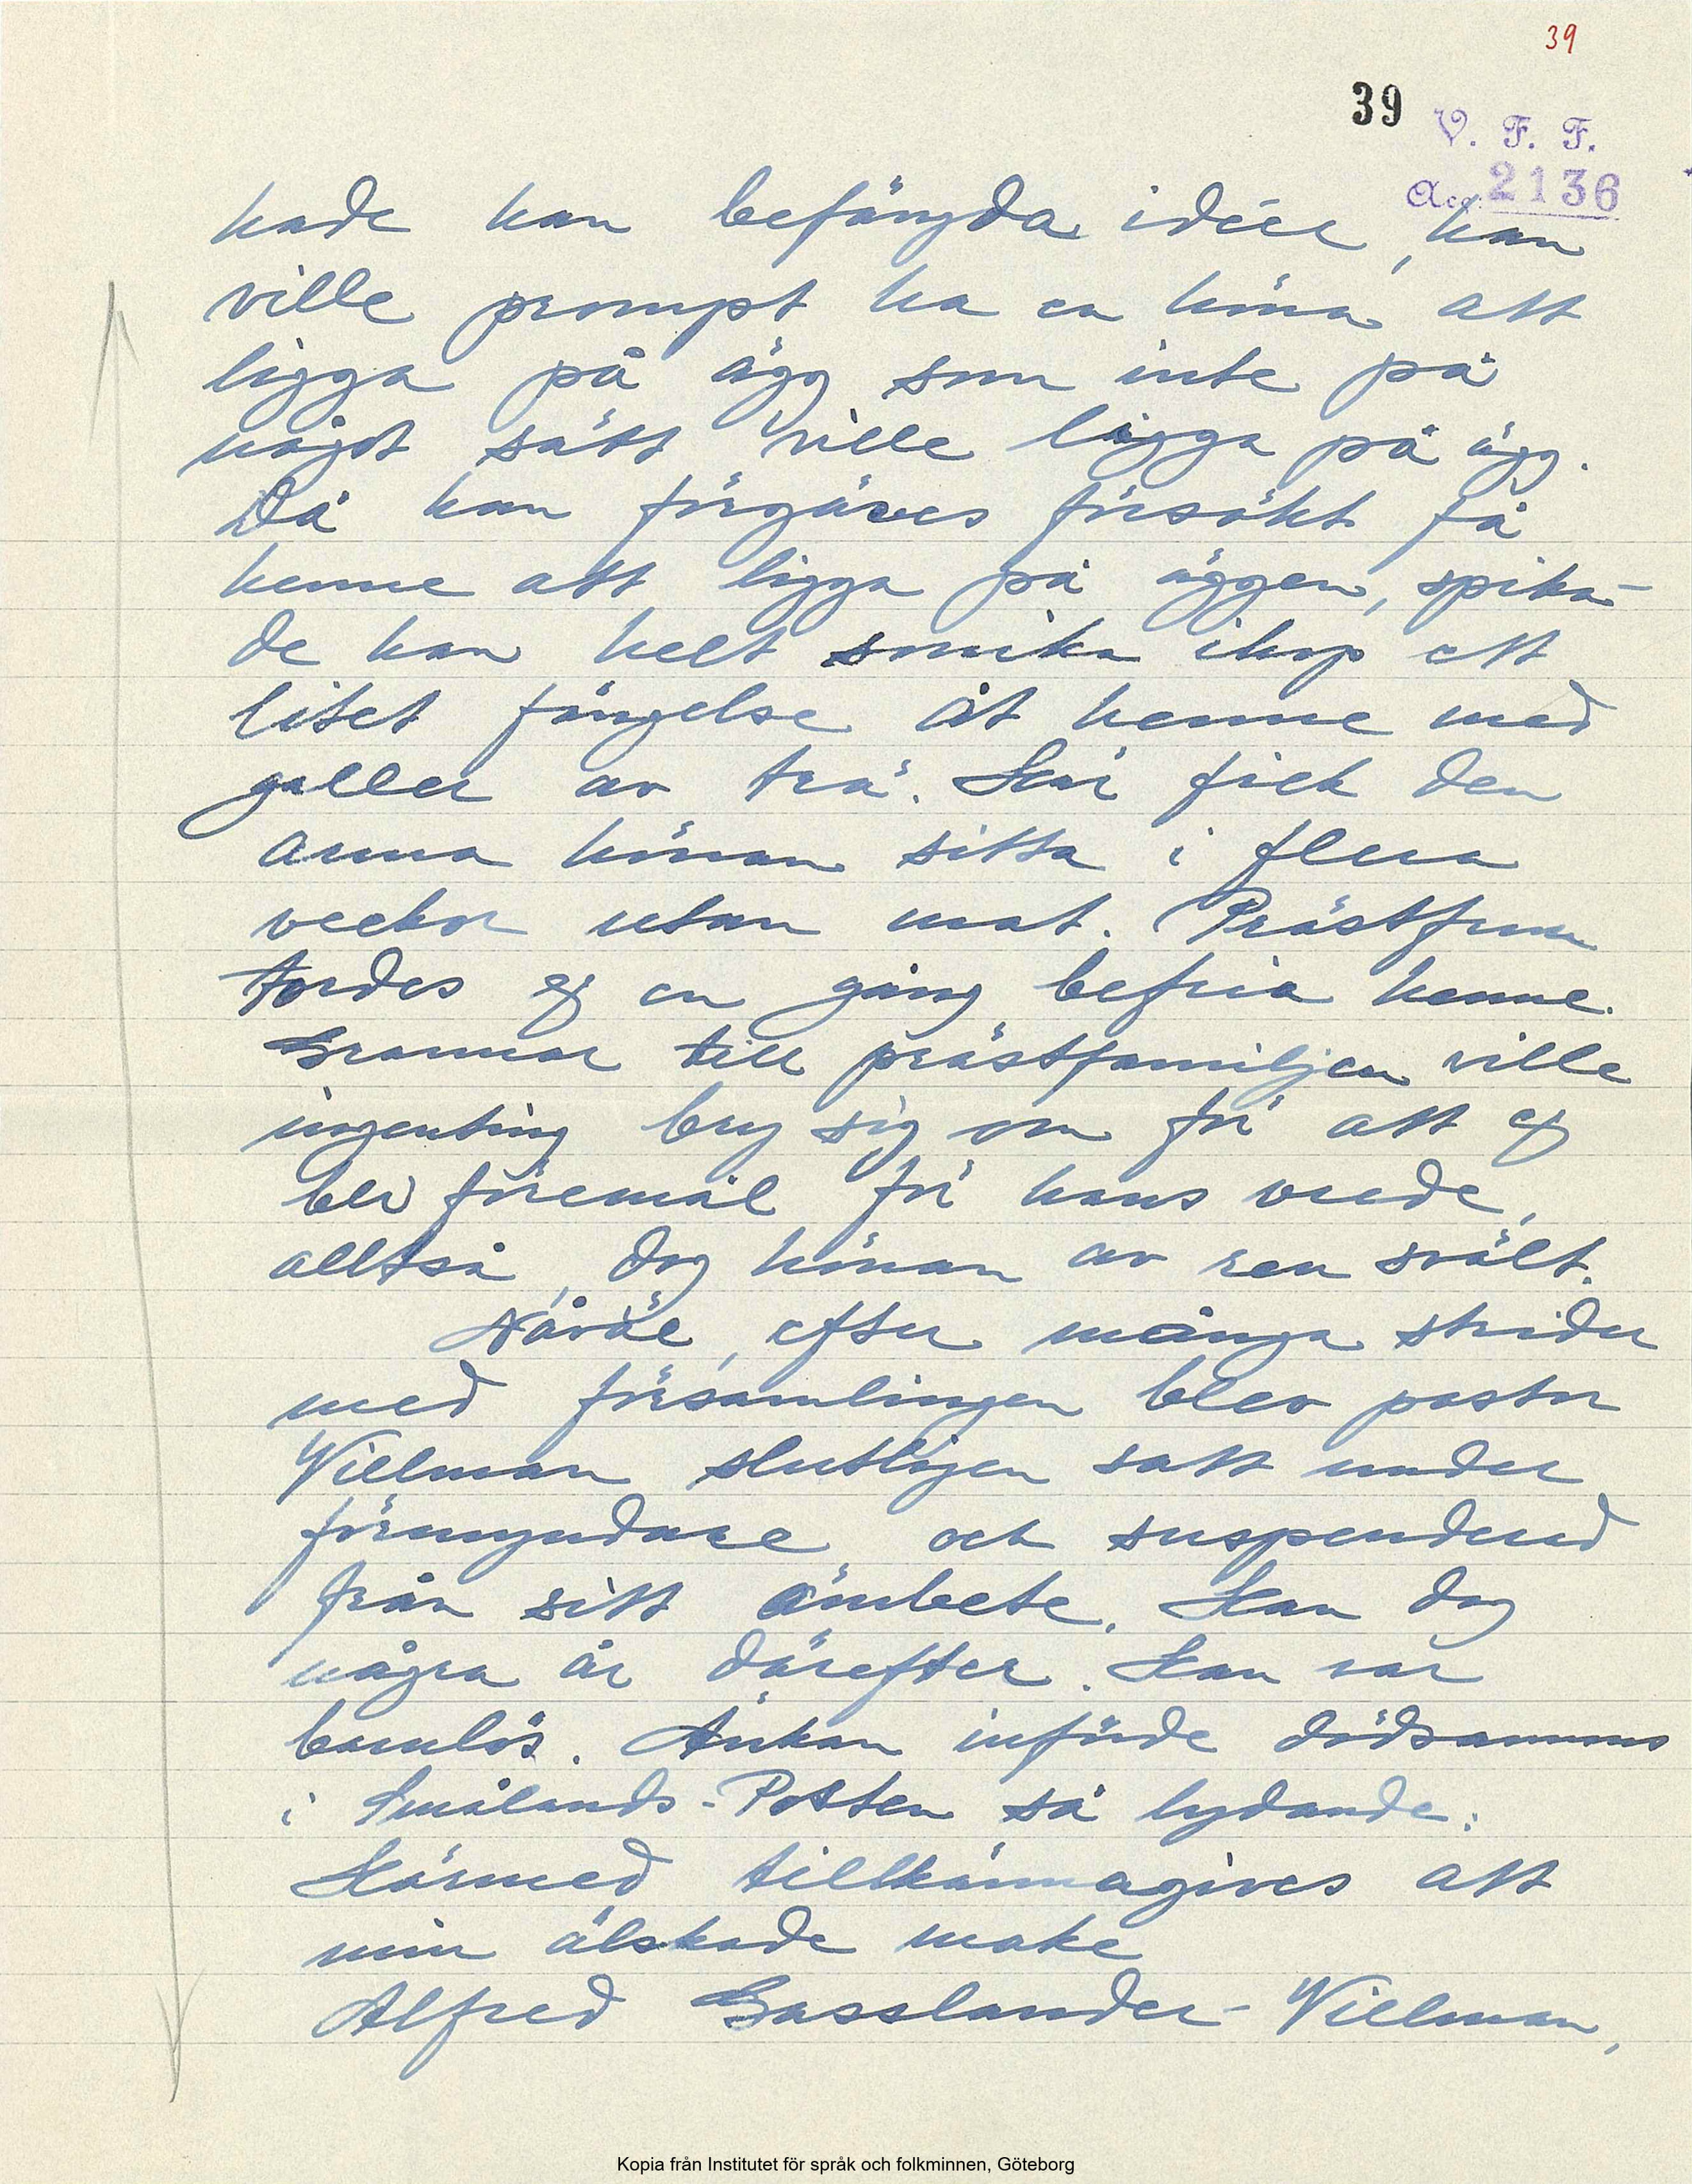 39
39
V. F. F.
Acc. 2136
hade han befängda idéer, han
ville prompt ha en höna att
ligga på ägg som inte på
något sätt ville ligga på ägg.
Då han förgäves försökt få
henne att ligga på äggen, spika-
de han helt sonika ihop ett
litet fängelse åt henne med
galler av trä. Här fick den
arma hönan sitta i flera
veckor utan mat. Prästfrun
tordes ej en gång befria henne.
Grannar till prästfamiljen ville
ingenting bry sig om för att ej
bli föremål för hans vrede,
alltså, dog hönan av ren svält.
Nåväl, efter många strider
med församlingen blev pastor
Willman slutligen satt under
förmyndare och suspenderad
från sitt ämbete. Han dog
några år därefter. Han var
barnlös. Änkan införde dödsannons
i Smålands-Posten så lydande:
Härmed tillkännagives att
min älskade make
Alfred Gasslander-Willman,
Kopia från Institutet för språk och folkminnen, Göteborg